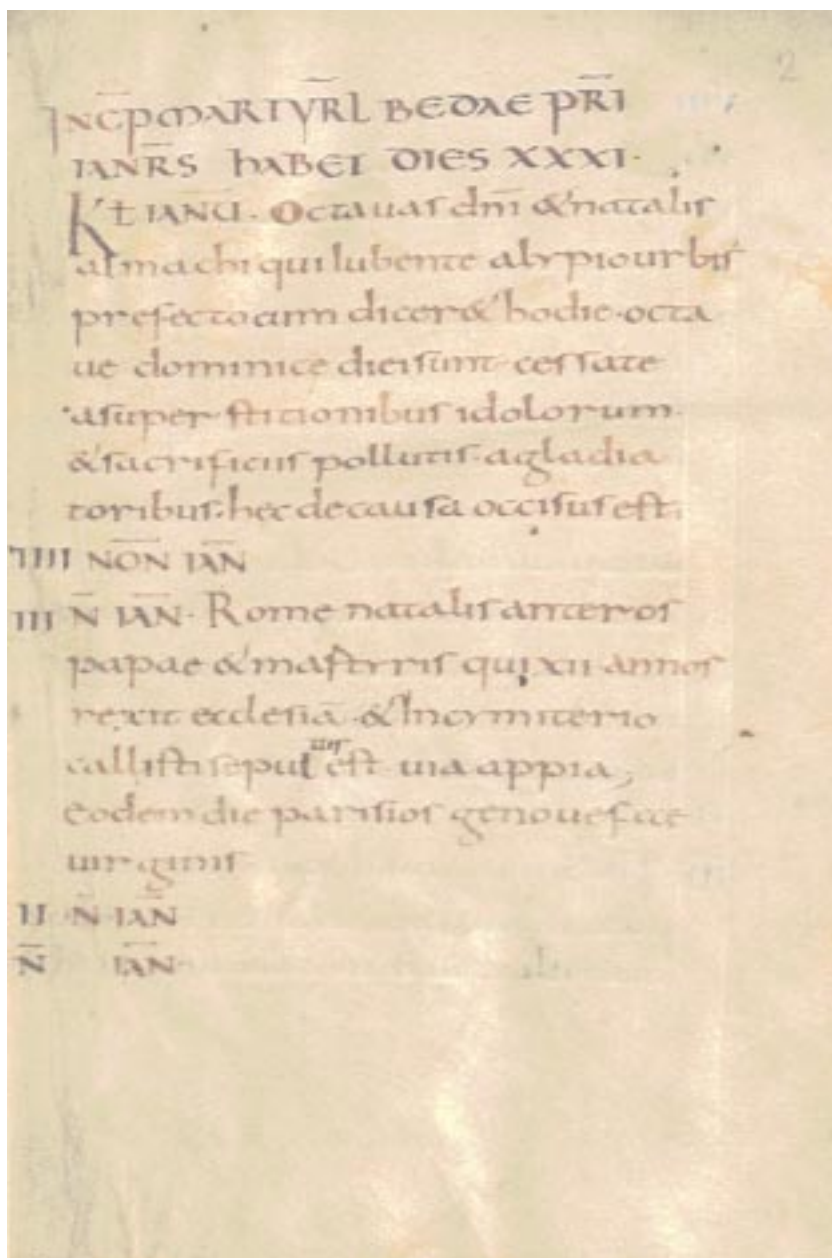 2
INC̅P MARTYR̅L BEDAE PR̅I
IANR̅S HABET DIES XXXI·
K̅L IANU̅· Octauas dn̅i & natalis
almachi qui iubente alypio urbis
prefecto cum dicer& hodie·octa
ue dominice diei sunt cessate
a super stitionibus idolorum·
& sacrificiis pollutis·a gladia
toribus·hec de causa occisus est·
IIII NO̅N IA̅N
III N̅ IA̅N· Rome natalis anteros
papae & martyris qui xii annos
rexit ecclesia̅ & In cymiterio
callisti sepultus est uia appia,
Eodem die parisios genouefae
uirginis
II N̅ IA̅N
N̅ IA̅N·